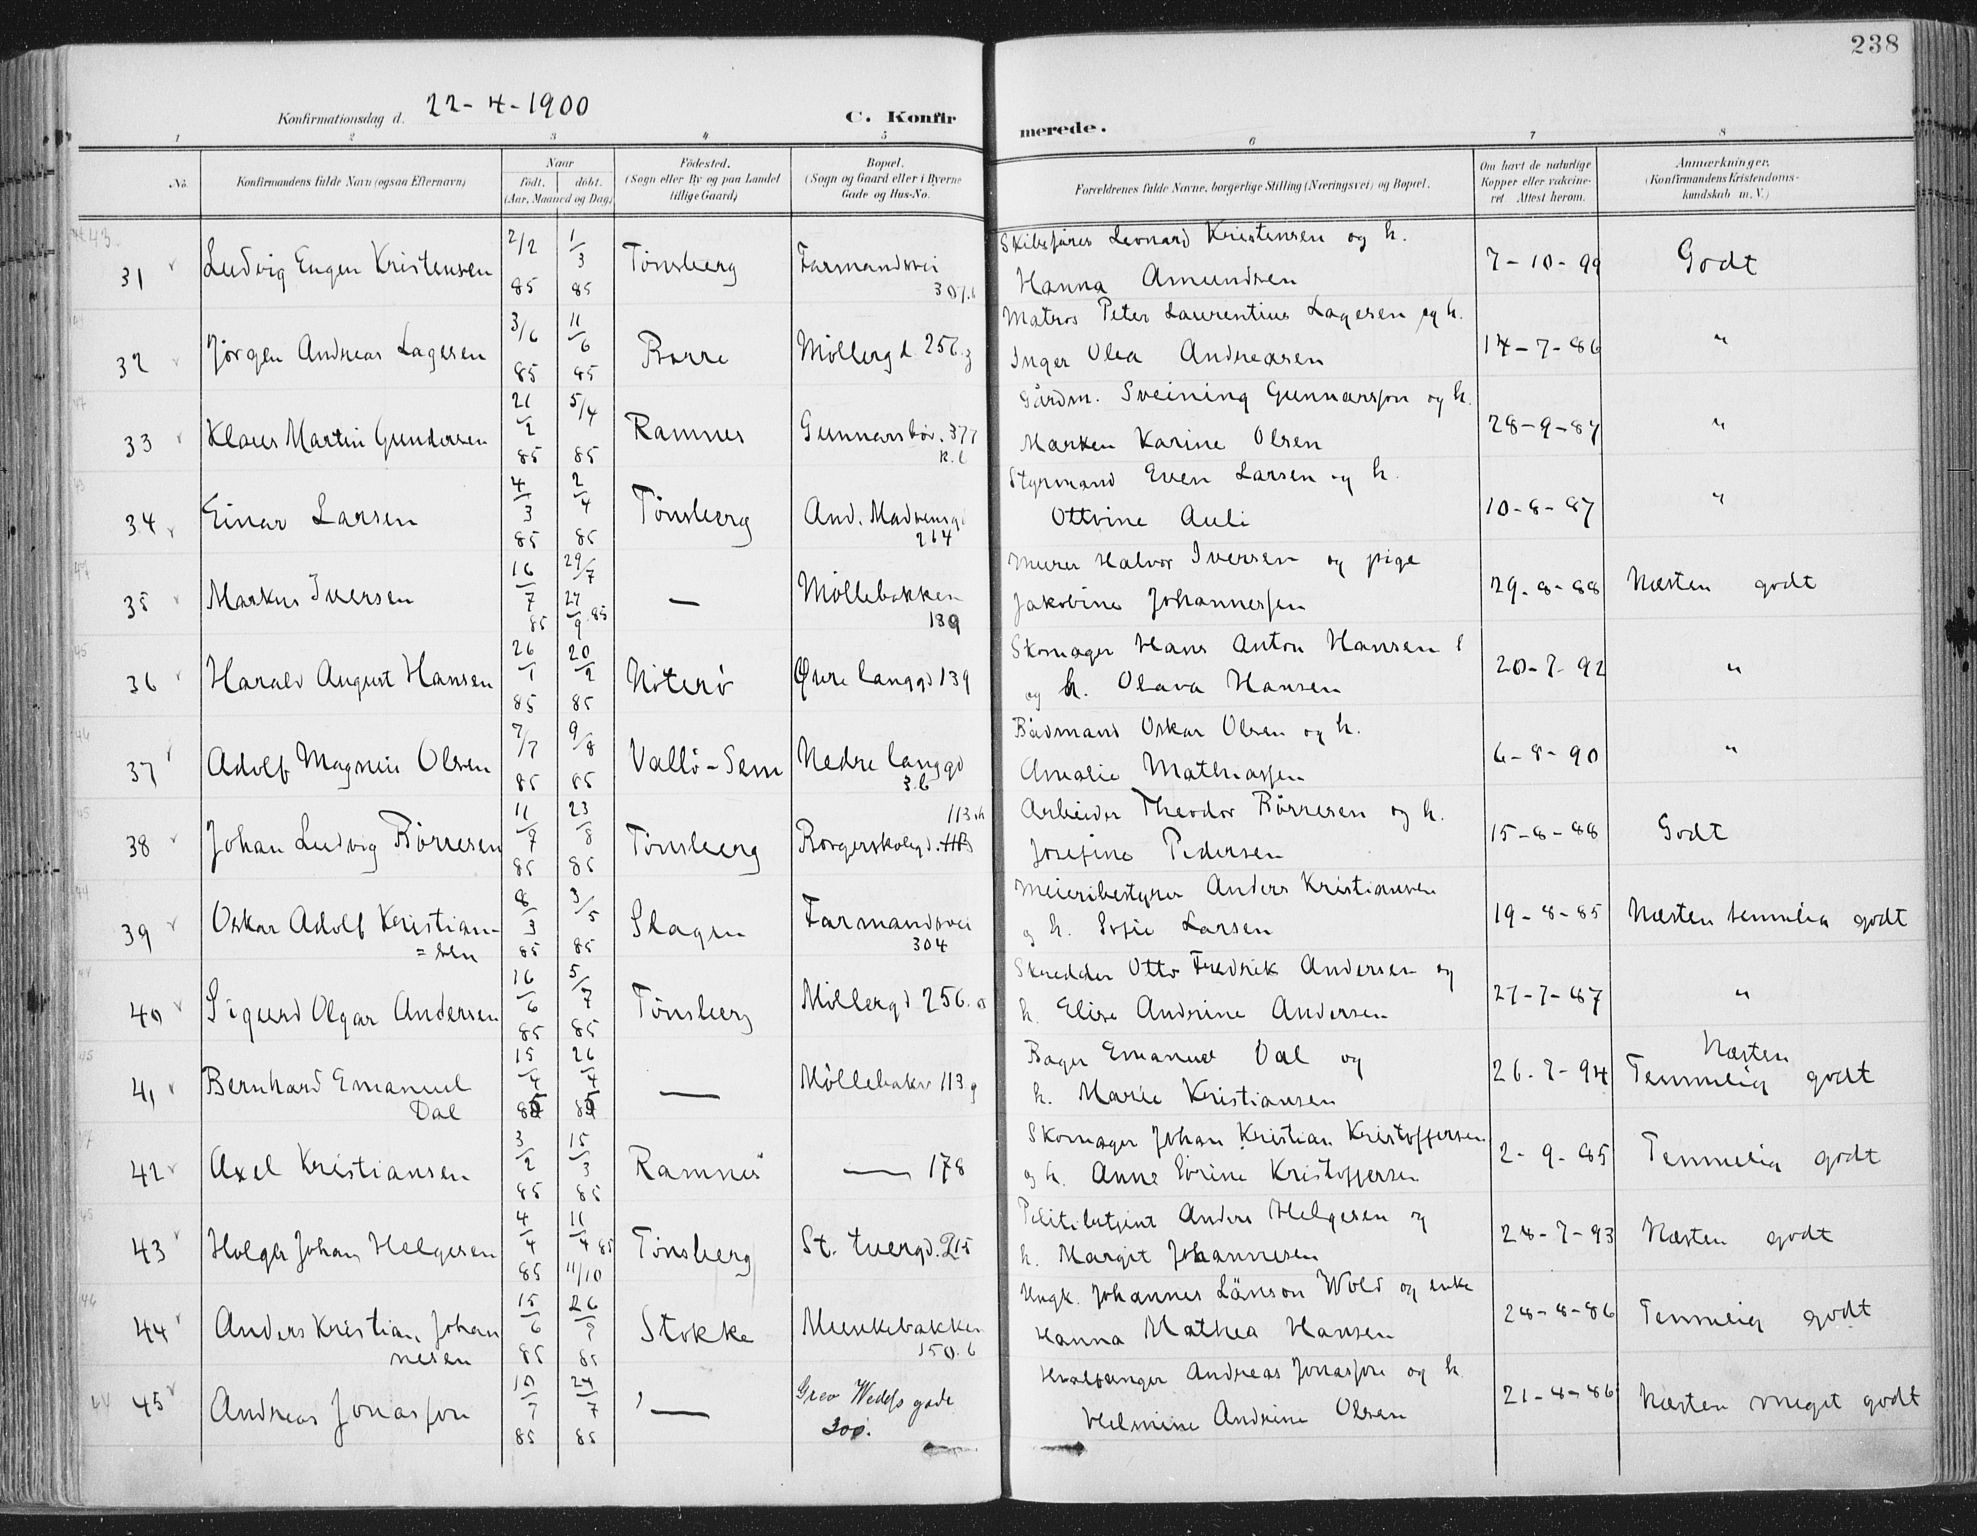 238
Konfirmationsdag d. 22-4-1900
C. Konfir merede.
1 2 3 4 5 6 7 8
No. Konfirmandens fulde Navn (ogsaa Efternavn) Naar født. døbt. (Aar, Maaned og Dag) Fødested. (Sogn eller By og paa Landet tillige Gaard) Bopæl. (Sogn og Gaard eller i Byerne Gade og Hus-No. Forældrenes fulde Navne, borgerlige Stilling (Næringsvei) og Bopæl. Om havt de naturlige Kopper eller vakcineret. Attest herom. Anmærkninger. (Konfirmandens Kristendomskundskab m. V.)
31 Ludvig Eugen Kristensen 2/2 85 1/3 85 Tønsberg Farmandsvei 307.b Skibsfører Leonard Kristensen og h.
Hanna Amundsen 7-10-99 Godt
32 Jørgen Andreas Lagesen 3/6 85 11/6 85 Borre Møllergd. 256.z Matros Peter Laurentius Lagesen og h.
Inger Olea Andreasen 14-7-86 "
33 Klaus Martin Gundersen 21/2 85 5/4 85 Ramnes Gunnarsbøv. 377 k.b Gårdm. Sveining Gunnarsson og h.
Marken Karine Olsen 28-9-87 "
34 Einar Larsen 4/3 85 2/4 85 Tønsberg And. Madsensg. 264 Styrmand Even Larsen og h.
Ottvine Auli 10-8-87 "
35 Markus Iversen 16/7 85 29/7 27/9 85 — Møllebakken 139 Murer Halvor Iversen og pige
Jakobine Johannessen 29-8-88 Næsten godt
36 Harald August Hansen 26/1 85 20/2 85 Nøterø Øvre langgd 139 Skomager Hans Anton Hansen
og h. Olava Hansen 20-7-92 "
37 Adolf Magnus Olsen 7/7 85 9/8 85 Vallø-Sem Nedre langgd 3.b Bådmand Oskar Olsen og h.
Amalie Mathiassen 6-8-90 "
38 Johan Ludvig Børresen 11/7 85 23/8 85 Tønsberg Borgerskolegd. 113.h Arbeider Theodor Børresen og h.
Josefine Pedersen 15-8-88 Godt
39 Oskar Adolf Kristian=sen 8/3 85 3/5 85 Slagen Farmandsvei 304 Meieribestyrer Anders Kristiansen
og h. Sofie Larsen 19-8-85 Næsten temmelig godt
40 Sigurd Olgar Andersen 16/6 85 5/7 85 Tønsberg Møllergd 256. Skredder Otto Fredrik Andersen og
h. Elise Andrine Andersen 27-7-87 "
41 Bernhard Emanuel Dal 15/4 85 26/4 85 — Møllebakv 113 g Bager Emanuel Dal og
h. Marie Kristiansen 26-7-94 Næsten Temmelig godt
42 Axel Kristiansen 3/2 85 15/3 85 Ramnes — 178 Skomager Johan Kristian Kristoffersen
og h. Anne Sørine Kristoffersen 2-9-85 Temmelig godt
43 Holger Johan Helgesen 4/4 85 11/4 85 11/10 Tønsberg St. tvergd. 215 Politibetjent Anders Helgesen og
h. Margit Johannesen 28-7-93 Næsten godt
44 Anders Kristian Johannesen 15/6 85 26/9 85 Stokke Munkebakken 150.b Ungk. Johannes Wold og enke
Hanna Mathea Hansen 28-8-86 Temmelig godt
45 Andreas Jonassen 10/7 85 24/7 85 — Grev Wedels gade 300. Hvalfanger Andreas Jonassen og h.
Helmine Andrine Olsen 21-8-86 Næsten meget godt